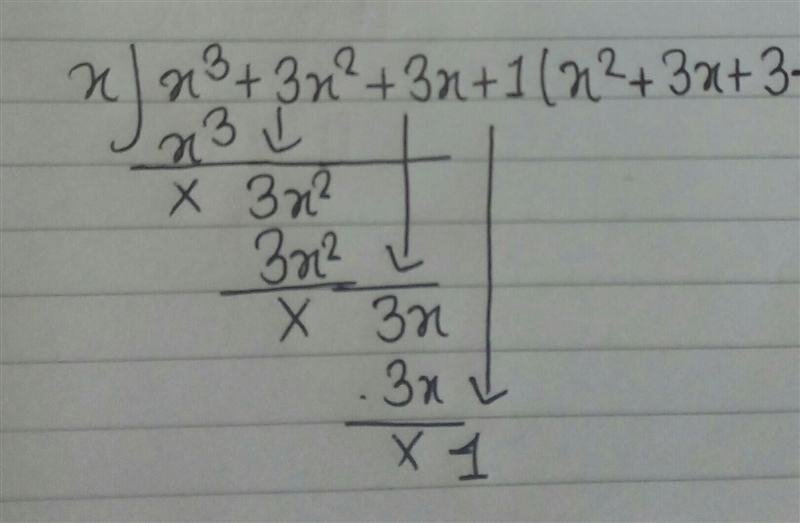 x) x³ + 3x² + 3x + 1 ( x² + 3x + 3
x³
× 3x²
3x²
× 3x
3x
× 1